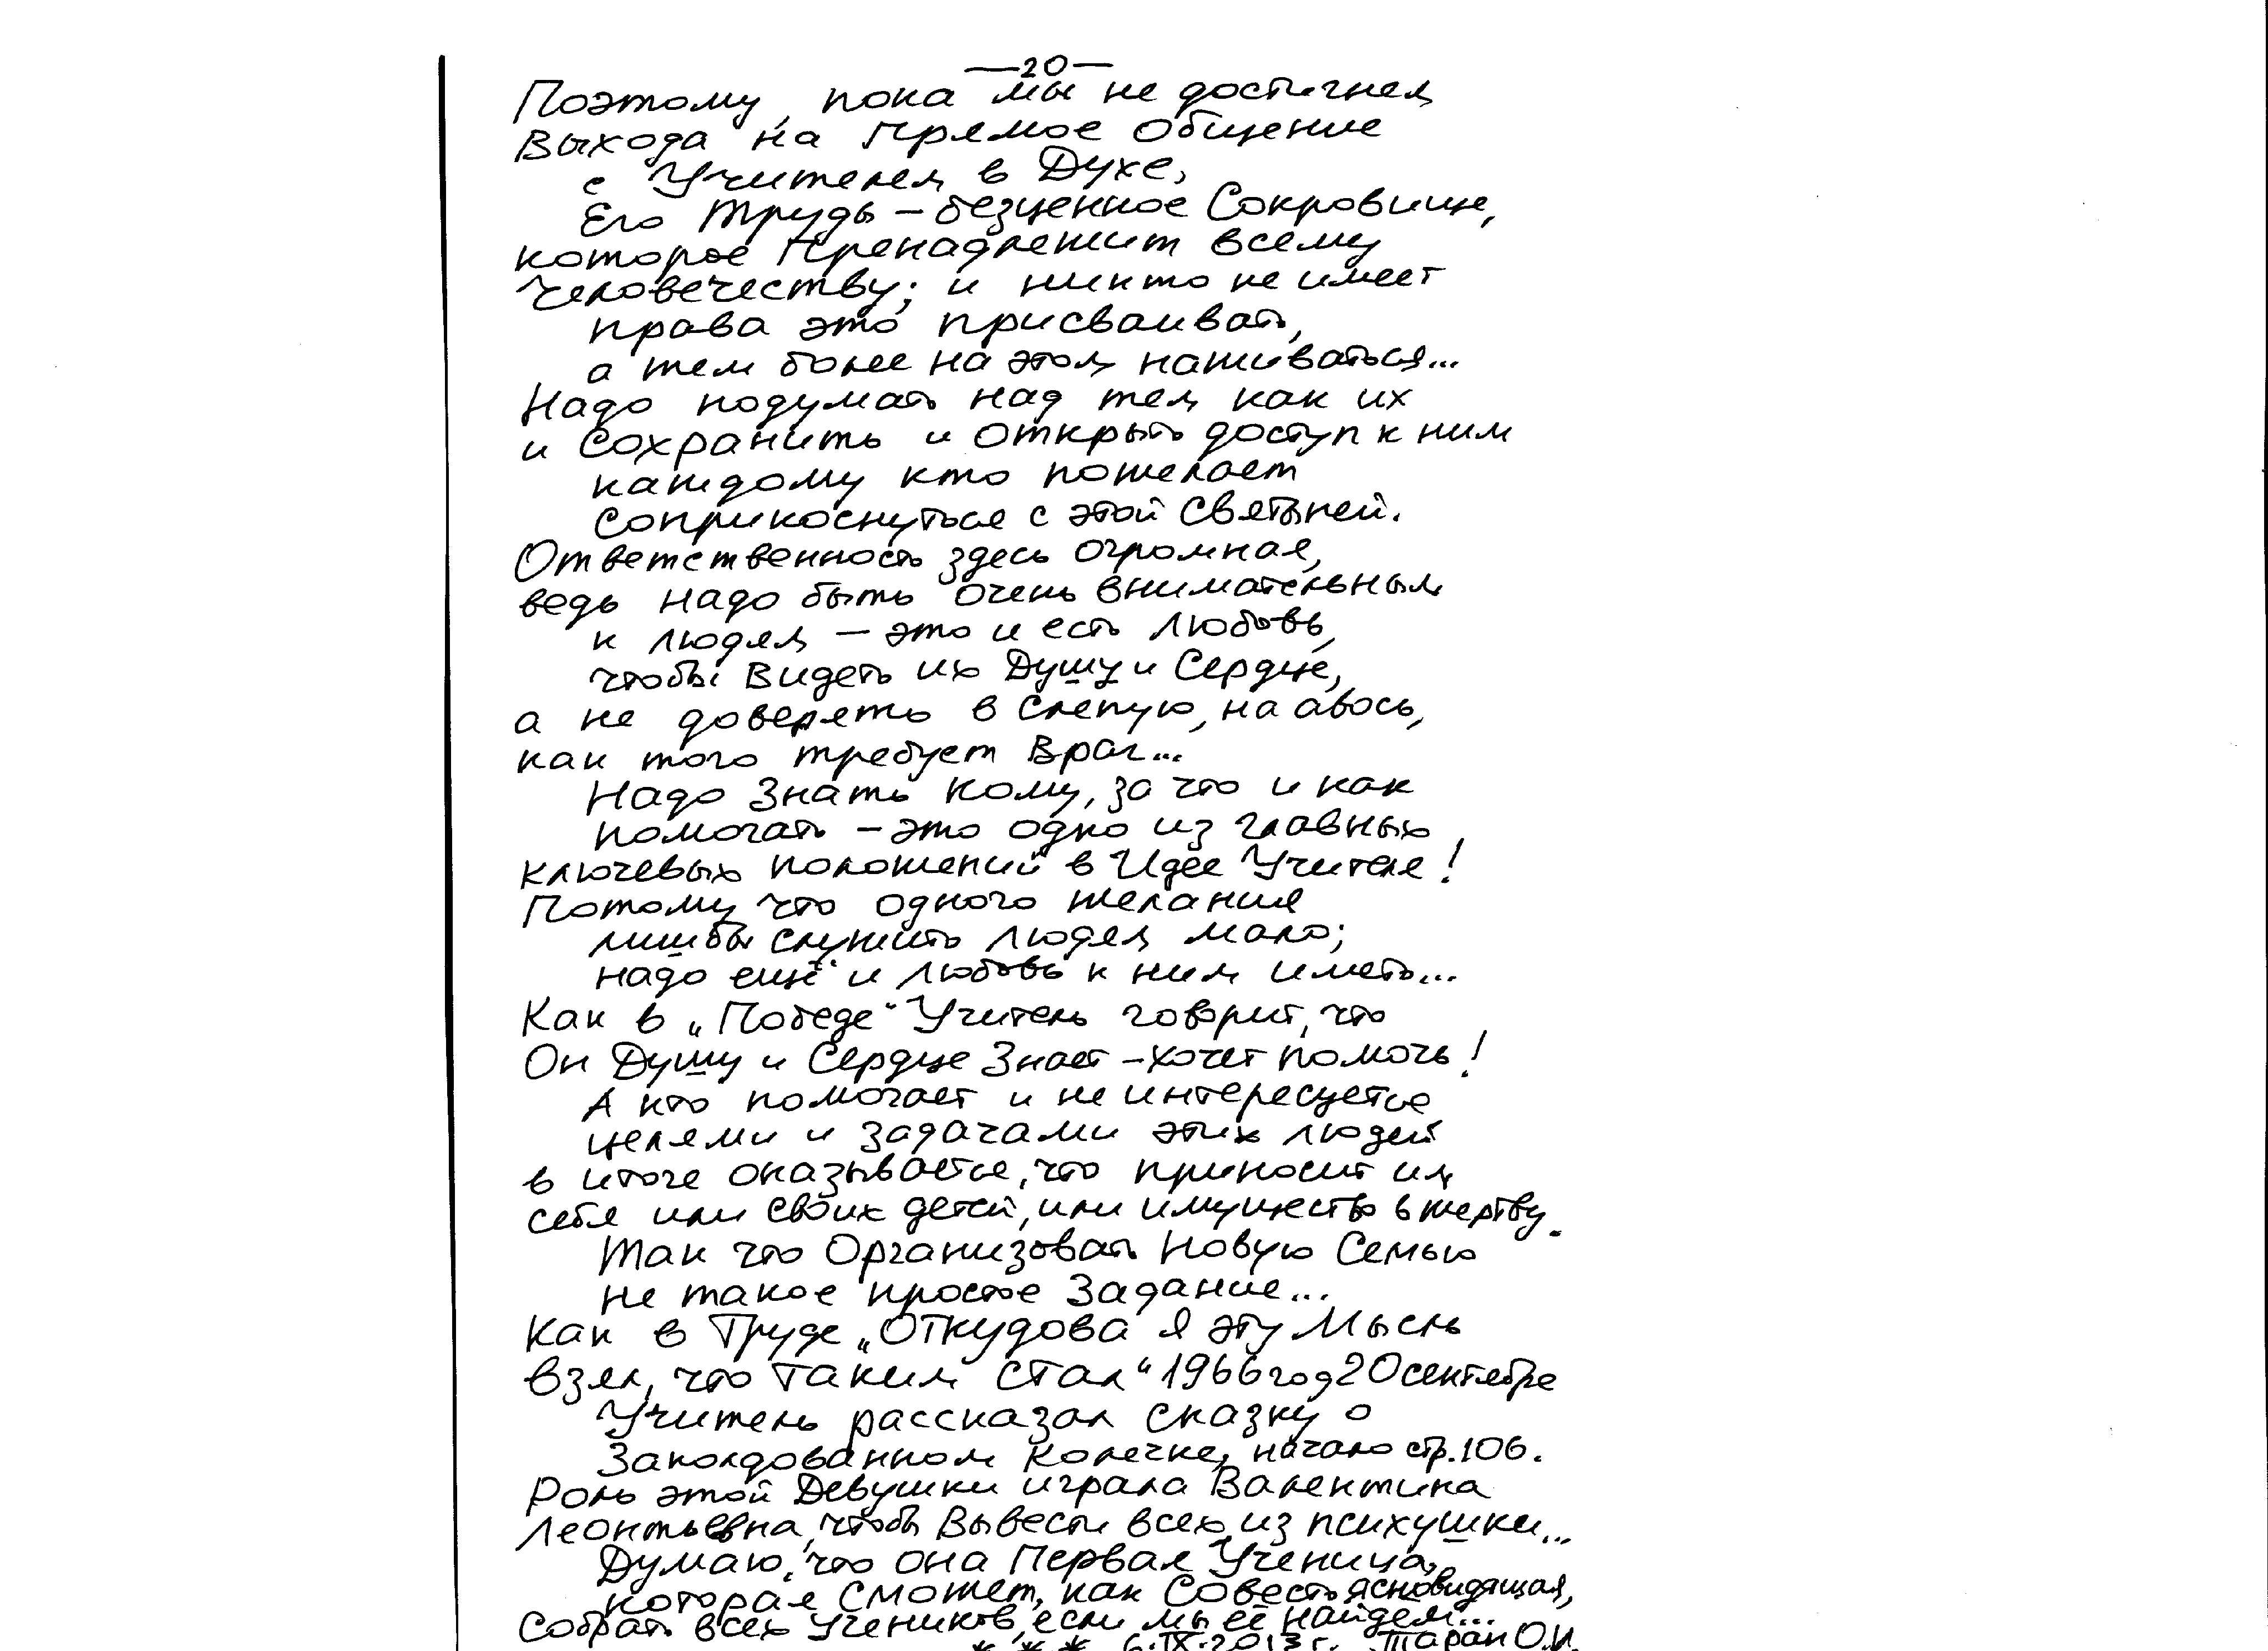 —20—
Поэтому, пока мы не достигнем
Выхода на Прямое Общение
с Учителем в Духе,
Его Труды – безценное Сокровище,
которое Пренадлежит всему
Человечеству; и никто не имеет
права это присваивать,
а тем более на этом наживаться...
Надо подумать над тем как их
и Сохранить и Открыть доступ к ним
каждому кто пожелает
Соприкоснуться с этой Святыней.
Ответственность здесь Огромная,
ведь надо быть очень внимательным
к людям – это и есть Любовь,
чтобы Видеть их Душу и Сердце,
а не доверять в Слепую, на авось,
как того требует Враг...
Надо Знать Кому, за что и как
помогать – это одно из главных
ключевых положений в Идее Учителя!
Потому что одного желания
лишбы служить людям мало;
надо ещё и любовь к ним иметь...
Как в „Победе“ Учитель говорит, что
Он Душу и Сердце Знает – хочет помочь!
А кто помогает и не интересуется
целями и задачами этих людей
в итоге оказывается, что приносит им
себя или своих детей, или имущество в жертву.
Так что Организовать Новую Семью
не такое простое Задание...
Как в Труде „Откудова я эту Мысль
взял, что таким стал“ 1966 год 20 сентября
Учитель рассказал сказку о
Заколдованном Колечке, начало стр. 106.
Роль этой Девушки играла Валентина
Леонтьевна, чтобы Вывести всех из психушки...
Думаю, что она Первая Ученица,
которая Сможет, как Совесть ясновидящая,
Собрать всех Учеников, если мы её найдём...
* * * 6.IX.2013 г. Таран О.И.